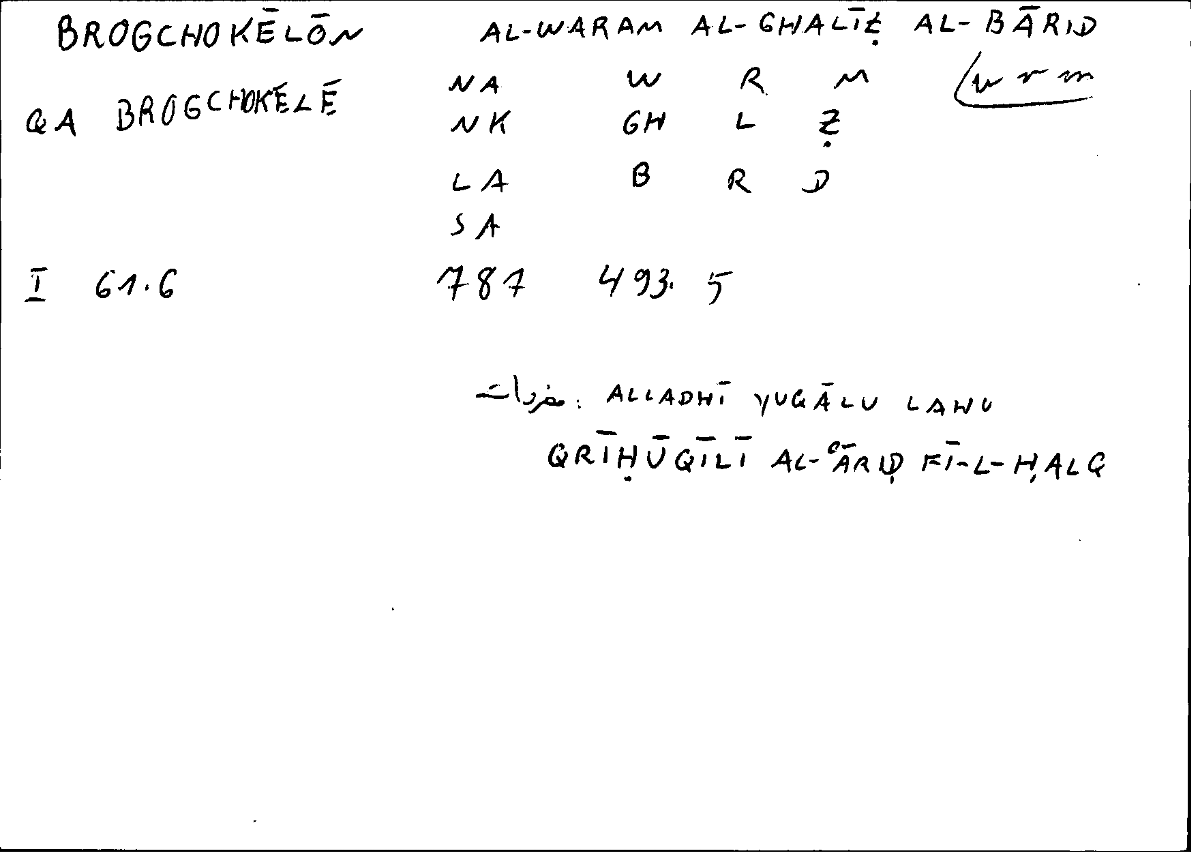 BROGCHOKĒLŌN AL-WARAM AL-GHALĪẒ AL-BĀRID
NA W R M w r m
QA BROGCHOKĒLĒ NK GH L Ẓ
LA B R D
SA
I 61.6 787 493. 5
مفردات : ALLADHĪ YUQĀLU LAHU
QRĪḤŪQĪLĪ AL-ʿĀRIḌ FĪ-L-ḤALQ